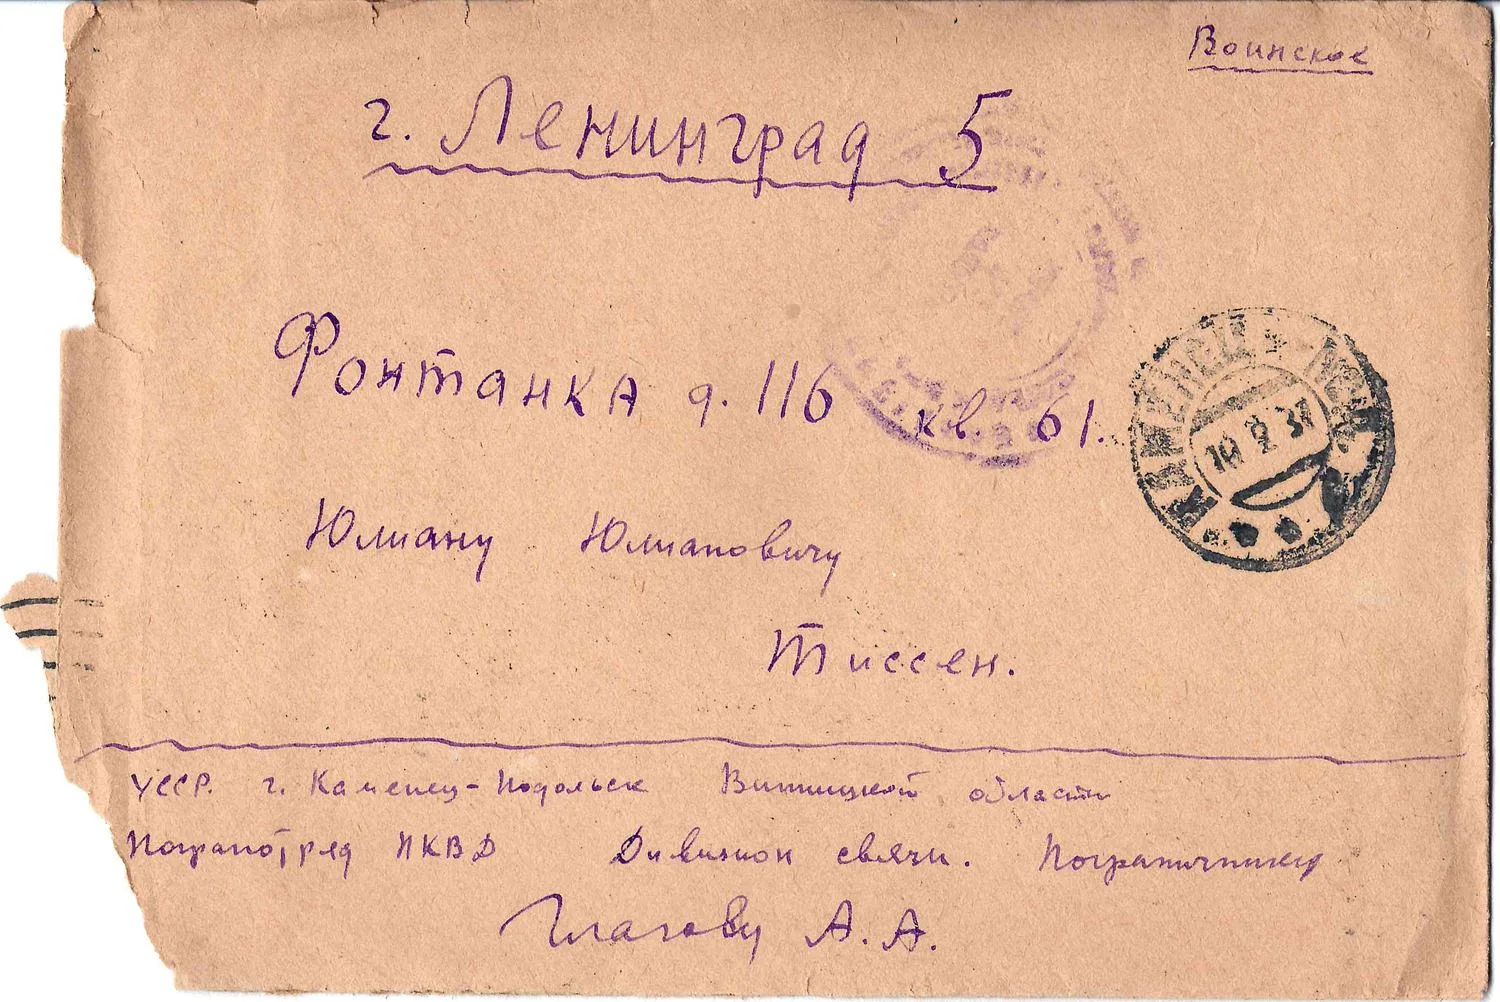 Воинское
г. Ленинград 5
Фонтанка д. 116 кв. 61.
Юлиану Юлиановичу
Тиссен.
УССР. г. Каменец-Подольск Винницкой области
Погранотряд НКВД Дивизион связи. Пограничнику
Глагову А. А.
КАМЕНЕЦ-ПОД
10 2 37